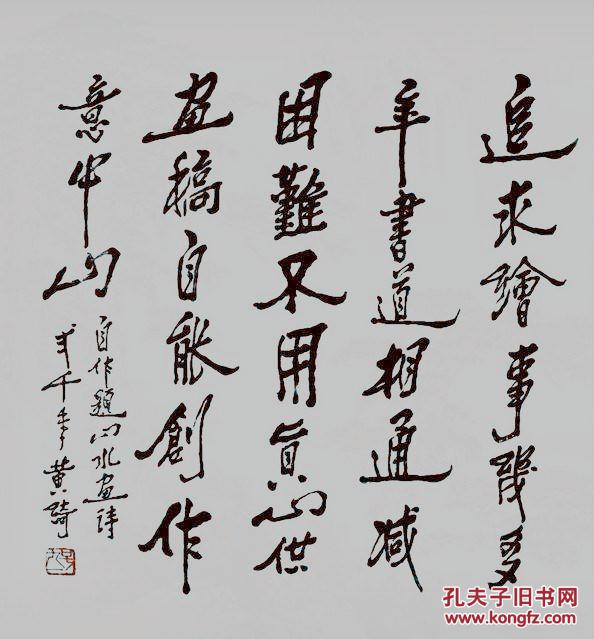 追求繪事幾多
年書道相通減
困難不用真山供
畫稿自能創作
意中山
自作題山水畫詩
弍千年黄綺
孔夫子旧书网
www.kongfz.com